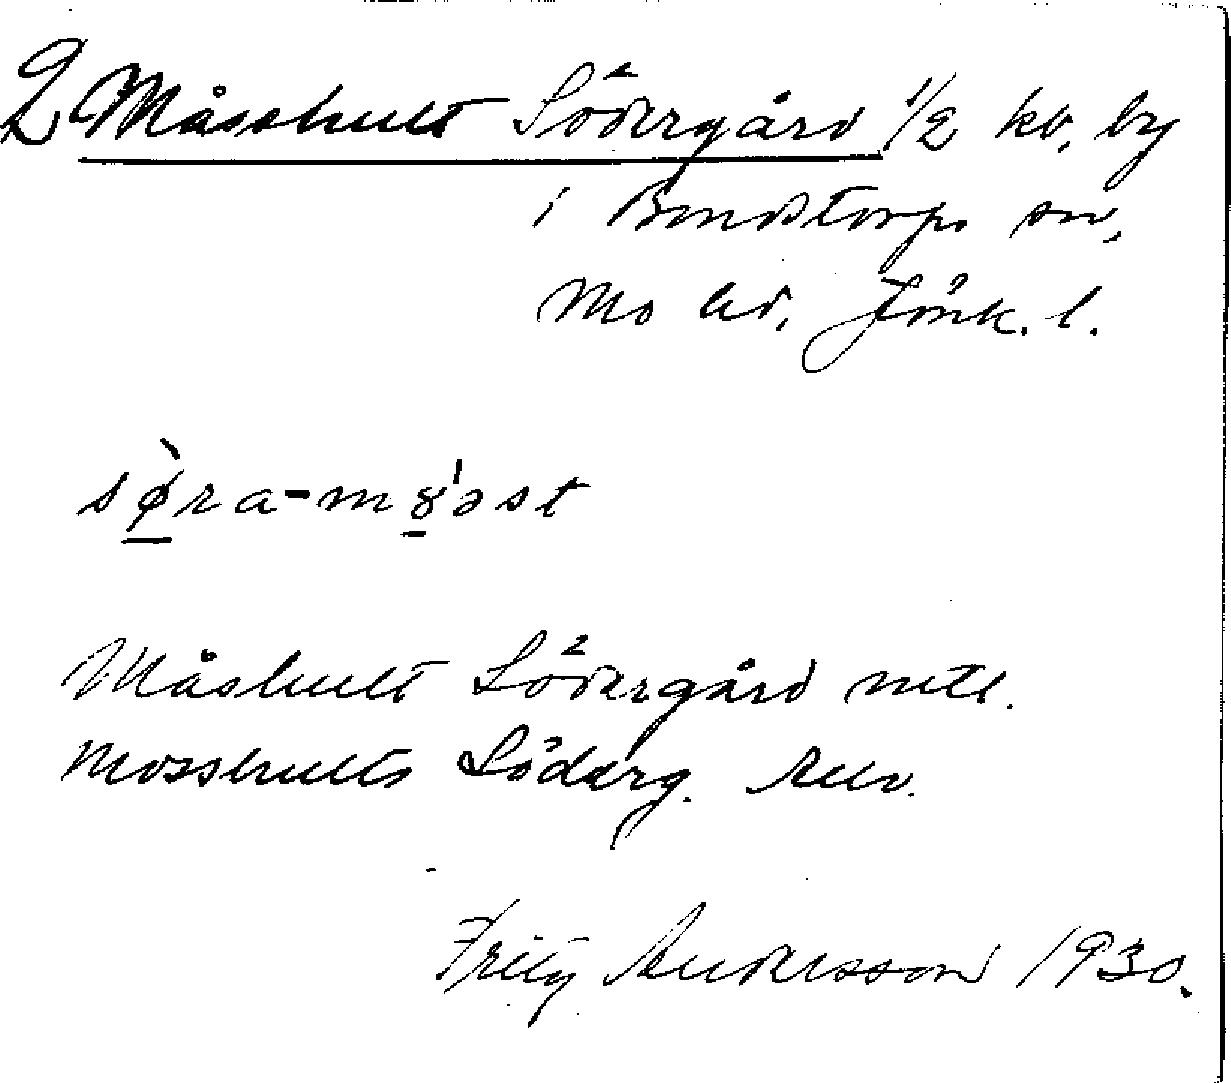 2 Måsshult Södergård 1/2 kv, by
i Bondstorps sn,
Mo hd, Jönk. l.
sø̀ra-mȣ́əst
Måshult Södergård mtl.
Mosshults Söderg.
Fritz Andersson 1930.